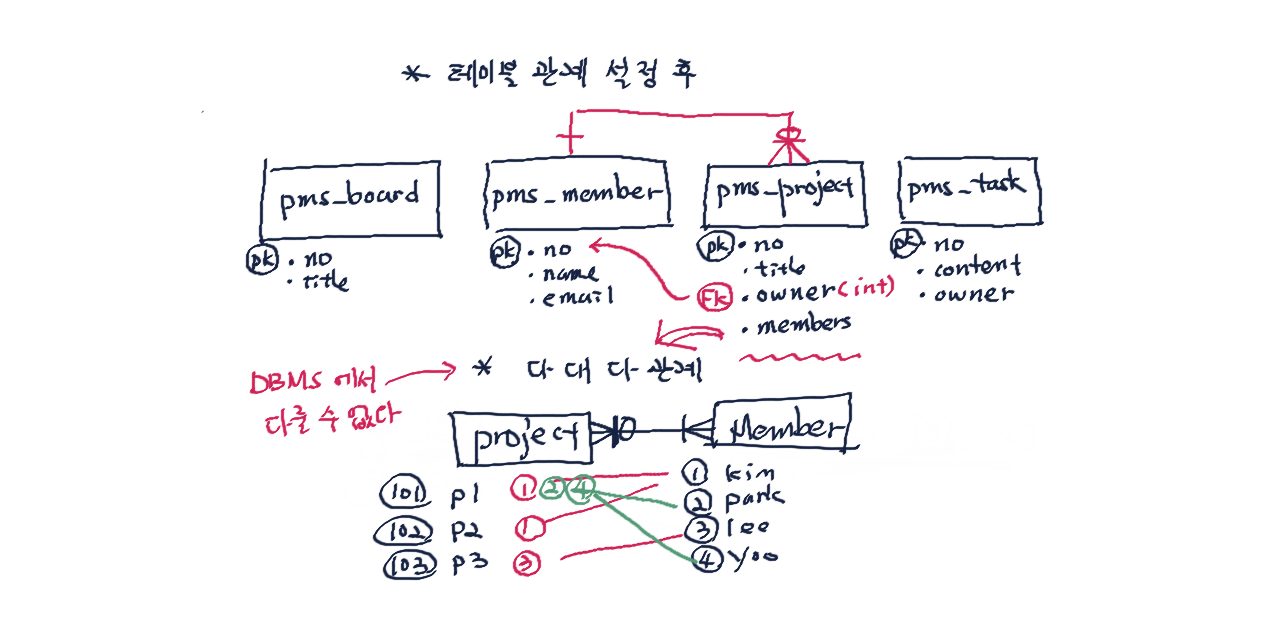 * 테이블 관계 설정 후
pms_board
pk · no
· title
pms_member
pk · no
· name
· email
pms_project
pk · no
· title
Fk · owner(int)
· members
pms_task
pk · no
· content
· owner
DBMS 에서
다룰 수 없다
* 다 대 다 관계
project
Member
101 p1 1 2 4
102 p2 1
103 p3 3
1 kim
2 park
3 lee
4 yoo